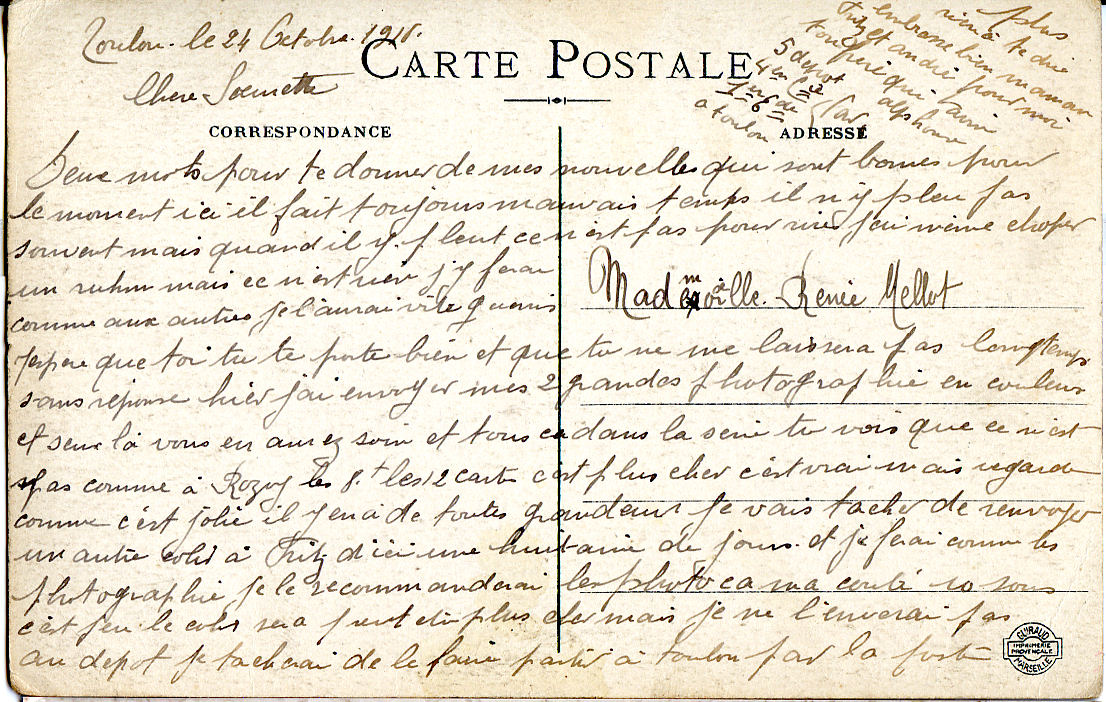 Toulon. le 24 Octobre. 1918.
CARTE POSTALE
Chere Soeurette
CORRESPONDANCE
ADRESSE
Deux mots pour te donner de mes nouvelles qui sont bonnes pour
le moment ici il fait toujours mauvais temps il n'y pleu pas
souvent mais quand il y pleut ce n'est pas pour rire j'ai même choper
un ruhm mais ce n'est rien j'y ferai
comme aux autres je l'aurai vite guéris
Mademoiselle. Renée Mellot
J'espere que toi tu te porte bien et que tu ne me laissera pas longtemps
sans réponse hier j'ai envoyer mes 2 grandes photographie en couleurs
et seux là vous en aurez soin et tous ca dans la serie tu vois que ce n'est
pas comme à Rozoy les 8.f les 12 carte c'est plus cher c'est vrai mais regarde
comme c'est jolie il y en a de toutes grandeurs je vais tacher de renvoyer
un autre colis à Fritz d'ici une huitaine de jours. et je ferai comme les
photographie je le recommanderai les photo ca ma couté 10 sous
c'est peu. le colis sera peut etre plus cher mais je ne l'enverai pas
au depot je tacherai de le faire partir à toulon par la poste
plus
rien à te dire
embrasse bien maman
Fritz et andré pour moi
ton frere qui t'aime
alphonse
5 depot
4 em Cie
1er de
à toulon
Var
GUIRAUD
IMPRIMERIE
PROVENÇALE
MARSEILLE